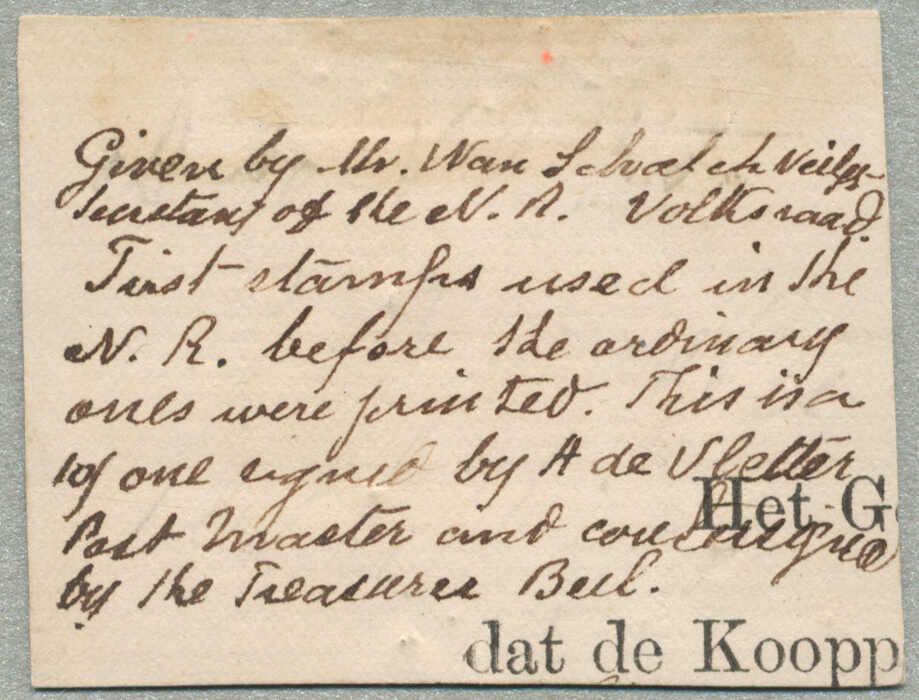 Given by Mr. Van
Secretary of the N. R. Volksraad.
First stamps used in the
N. R. before the ordinary
ones were printed. This is a
1of one signed by H de Vletter
Het G
Post Master and countersigned
by the Treasurer Beel.
dat de Koopp